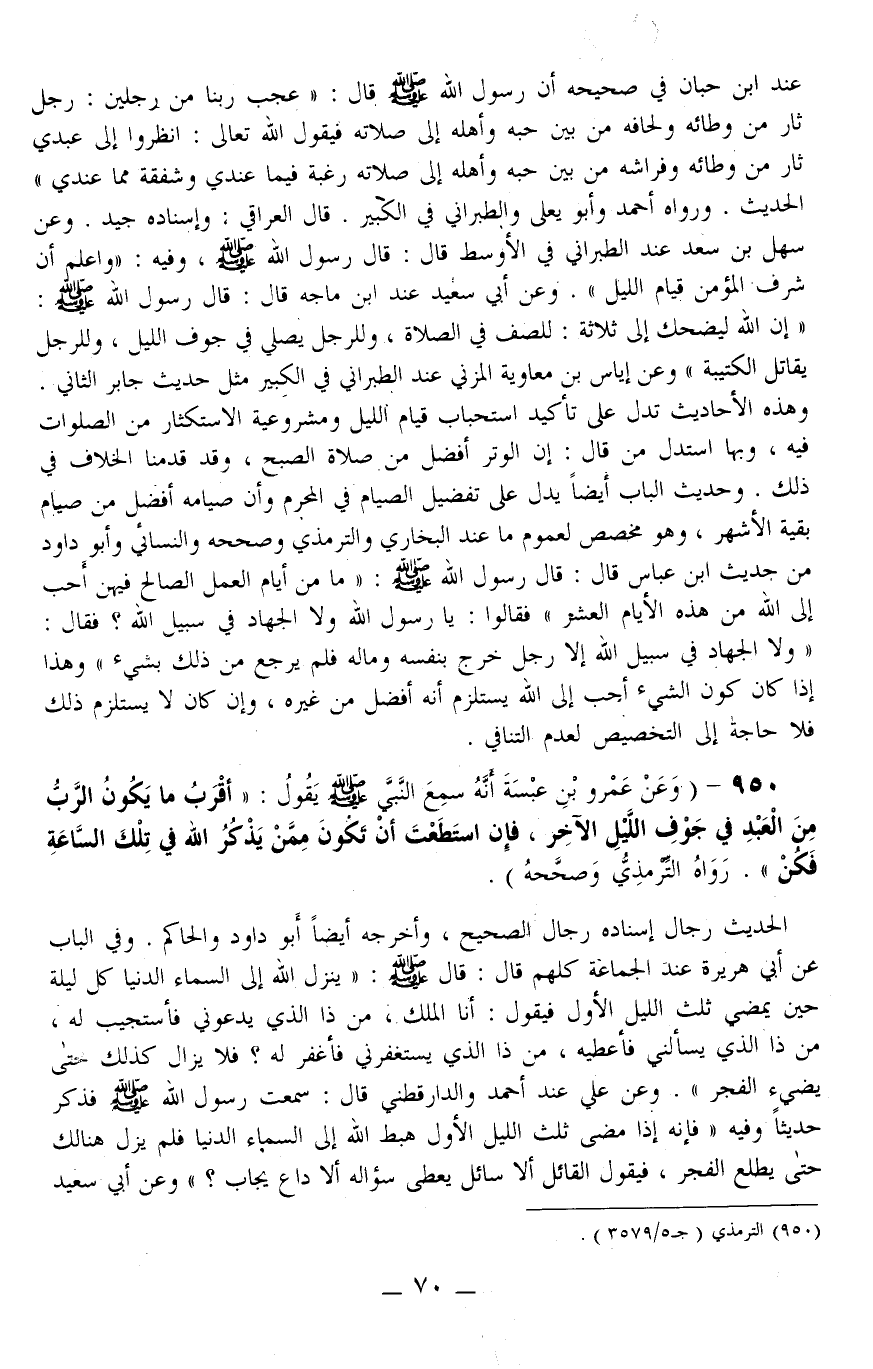 عند ابن حبان في صحيحه أن رسول الله ﷺ قال : « عجب ربنا من رجلين : رجل
ثار من وطائه ولحافه من بين حبه وأهله إلى صلاته فيقول الله تعالى : انظروا إلى عبدي
ثار من وطائه وفراشه من بين حبه وأهله إلى صلاته رغبة فيما عندي وشفقة مما عندي »
الحديث . ورواه أحمد وأبو يعلى والطبراني في الكبير . قال العراقي : وإسناده جيد . وعن
سهل بن سعد عند الطبراني في الأوسط قال : قال رسول الله ﷺ ، وفيه : «واعلم أن
شرف المؤمن قيام الليل » . وعن أبي سعيد عند ابن ماجه قال : قال رسول الله ﷺ :
« إن الله ليضحك إلى ثلاثة : للصف في الصلاة ، وللرجل يصلي في جوف الليل ، وللرجل
يقاتل الكتيبة » وعن إياس بن معاوية المزني عند الطبراني في الكبير مثل حديث جابر الثاني .
وهذه الأحاديث تدل على تأكيد استحباب قيام الليل ومشروعية الاستكثار من الصلوات
فيه ، وبها استدل من قال : إن الوتر أفضل من صلاة الصبح ، وقد قدمنا الخلاف في
ذلك . وحديث الباب أيضاً يدل على تفضيل الصيام في المحرم وأن صيامه أفضل من صيام
بقية الأشهر ، وهو مخصص لعموم ما عند البخاري والترمذي وصححه والنسائي وأبو داود
من حديث ابن عباس قال : قال رسول الله ﷺ : « ما من أيام العمل الصالح فيهن أحب
إلى الله من هذه الأيام العشر » فقالوا : يا رسول الله ولا الجهاد في سبيل الله ؟ فقال :
« ولا الجهاد في سبيل الله إلا رجل خرج بنفسه وماله فلم يرجع من ذلك بشيء » وهذا
إذا كان كون الشيء أحب إلى الله يستلزم أنه أفضل من غيره ، وإن كان لا يستلزم ذلك
فلا حاجة إلى التخصيص لعدم التنافي .
٩٥٠ – ( وَعَنْ عَمْرو بْنِ عبْسَةَ أَنَّهُ سمِعَ النَّبيَّ ﷺ يَقُولُ : « أقْرَبُ ما يَكُونُ الرَّبُّ
مِنَ الْعَبْدِ في جَوْفِ اللَّيْلِ الآخِرِ ، فإِن استَطَعْتَ أنْ تَكُونَ مِمَّنْ يَذْكُرُ الله في تِلْكَ السَّاعَةِ
فَكُنْ » . رَوَاهُ التِّرْمذِيُّ وَصحَّحهُ ) .
الحديث رجال إسناده رجال الصحيح ، وأخرجه أيضاً أبو داود والحاكم . وفي الباب
عن أبي هريرة عند الجماعة كلهم قال : قال ﷺ : « ينزل الله إلى السماء الدنيا كل ليلة
حين يمضي ثلث الليل الأول فيقول : أنا الملك ، من ذا الذي يدعوني فأستجيب له ،
من ذا الذي يسألني فأعطيه ، من ذا الذي يستغفرني فأغفر له ؟ فلا يزال كذلك حتى
يضيء الفجر » . وعن علي عند أحمد والدارقطني قال : سمعت رسول الله ﷺ فذكر
حديثاً وفيه « فإنه إذا مضى ثلث الليل الأول هبط الله إلى السماء الدنيا فلم يزل هنالك
حتى يطلع الفجر ، فيقول القائل ألا سائل يعطى سؤاله ألا داع يجاب ؟ » وعن أبي سعيد
(٩٥٠) الترمذي ( جـ٣٥٧٩/٥ ) .
ــ ٧٠ ــ